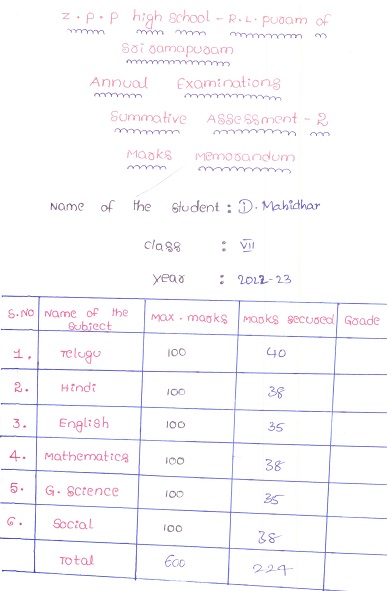 Z.P.P high school - R.L. puram of
Sri ramapuram
Annual Examinations
Summative Assessment - 2
Marks Memorandum
Name of the student : D. Mahidhar
class : VII
year : 2022-23
S.No Name of the Subject Max. marks Marks secured Grade
1. Telugu 100 40
2. Hindi 100 38
3. English 100 35
4. Mathematics 100 38
5. G. Science 100 35
6. Social 100 38
Total 600 224